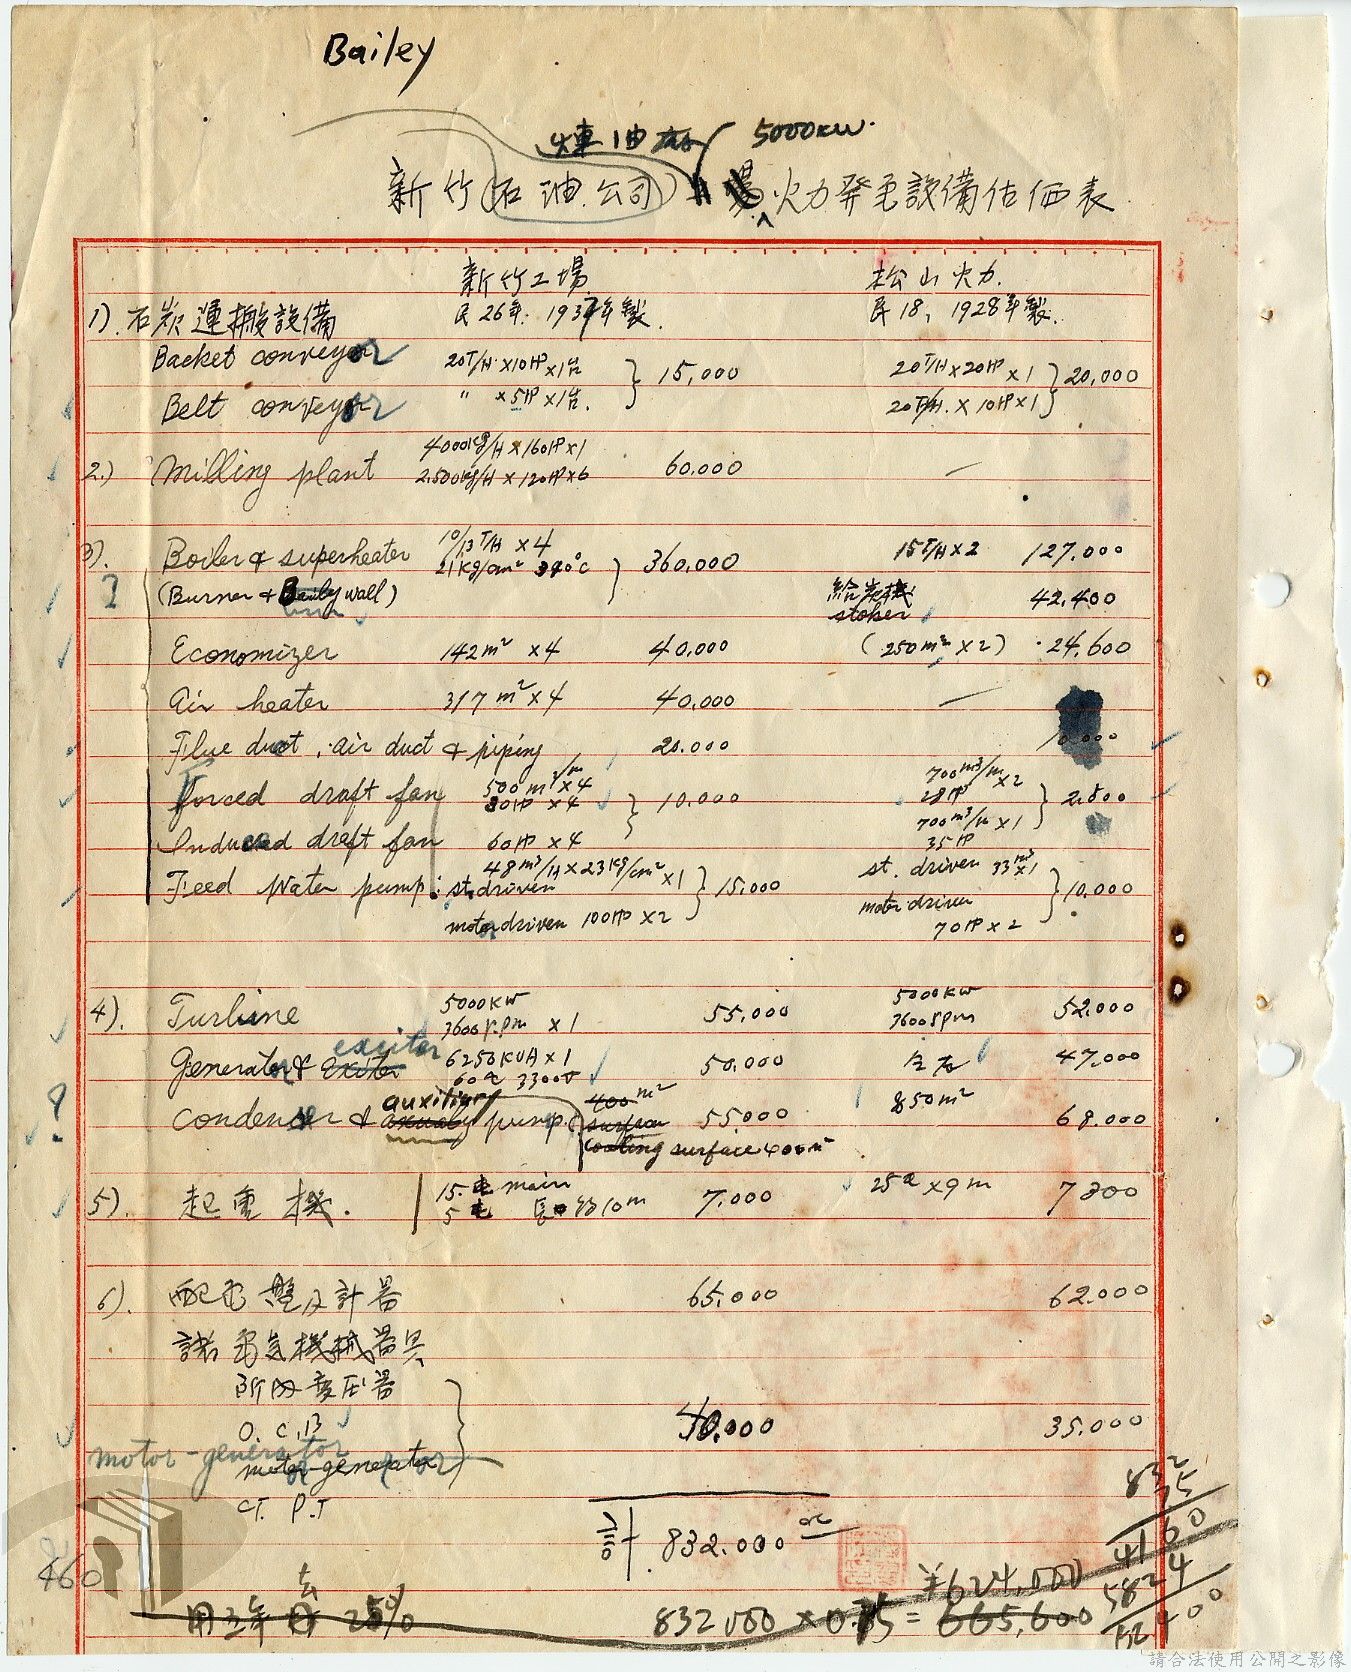 Bailey
煉油廠 5000KW.
新竹(石油公司) 場火力発电設備估価表
新竹工場 松山火力
1). 石炭運搬設備 民26年. 1937年製. 民18, 1928年製.
Backet conveyor 20T/H×10HP×1台 15,000 20T/H×20HP×1 20,000
Belt conveyor " ×5HP×1台. 20T/H.×10HP×1
4000kg/H×160HP×1
2.) Milling plant 2.500kg/H×120HP×6 60.000 —
3). Boiler & superheater 10/13T/H ×4 15T/H×2 127.000
21kg/cm² 390°C 360,000
? (Burner & Baily wall) 給炭機 stoker 42.400
Economizer 142m² ×4 40.000 (250m²×2) 24,600
Air heater 317m²×4 40,000 —
Flue duct, air duct & piping 20.000 10.000
Forced draft fan 500m³/m×4 30HP ×4 10,000 700m³/m 28HP ×2 2.800
Induced draft fan 60HP ×4 700m³/m×1 35HP
Feed Water pump: st. driven 48m³/H×23kg/cm²×1 15.000 st. driven 33m³×1 10.000
motor driven 100HP×2 motor driven 70HP×2
4). Turbine 5000KW 3600r.pm ×1 55.000 5000KW 3600rpm 52.000
exciter
Generator & Exciter 6250KVA×1 60~ 3300V 50.000 仝左 47.000
auxiliary
? condenser & pump (400m² surface 55.000 850m² 68.000
cooling surface 400m²
5). 起重機. 15.屯 main 5屯 10m 7,000 25屯×9m 7800
6). 配电盤及計器 65,000 62.000
諸电気機械器具
所内変圧器
O.C.B 40.000 35.000
motor-generator
motor-generator
CT. P.T
計 832.000
460
去
用五年 25% 832000×0.75 = 665,600
¥624,000
832
75
4160
5824
62400
請合法使用公開之影像